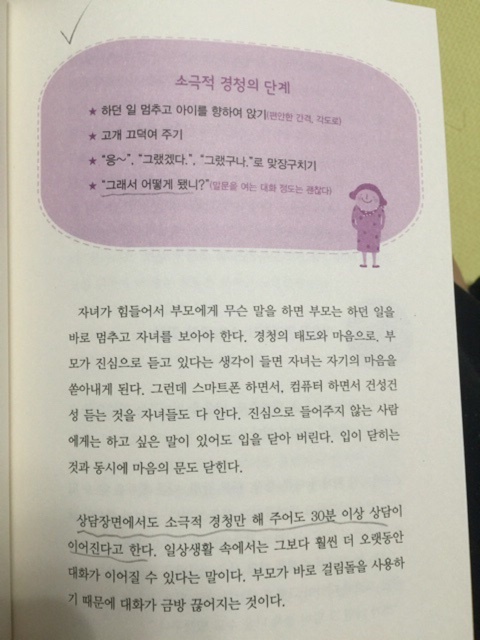 소극적 경청의 단계
★ 하던 일 멈추고 아이를 향하여 앉기(편안한 간격, 각도로)
★ 고개 끄덕여 주기
★ "응~", "그랬겠다.", "그랬구나."로 맞장구치기
★ "그래서 어떻게 됐니?"(말문을 여는 대화 정도는 괜찮다)
자녀가 힘들어서 부모에게 무슨 말을 하면 부모는 하던 일을
바로 멈추고 자녀를 보아야 한다. 경청의 태도와 마음으로, 부
모가 진심으로 듣고 있다는 생각이 들면 자녀는 자기의 마음을
쏟아내게 된다. 그런데 스마트폰 하면서, 컴퓨터 하면서 건성건
성 듣는 것을 자녀들도 다 안다. 진심으로 들어주지 않는 사람
에게는 하고 싶은 말이 있어도 입을 닫아 버린다. 입이 닫히는
것과 동시에 마음의 문도 닫힌다.
상담장면에서도 소극적 경청만 해 주어도 30분 이상 상담이
이어진다고 한다. 일상생활 속에서는 그보다 훨씬 더 오랫동안
대화가 이어질 수 있다는 말이다. 부모가 바로 걸림돌을 사용하
기 때문에 대화가 금방 끊어지는 것이다.